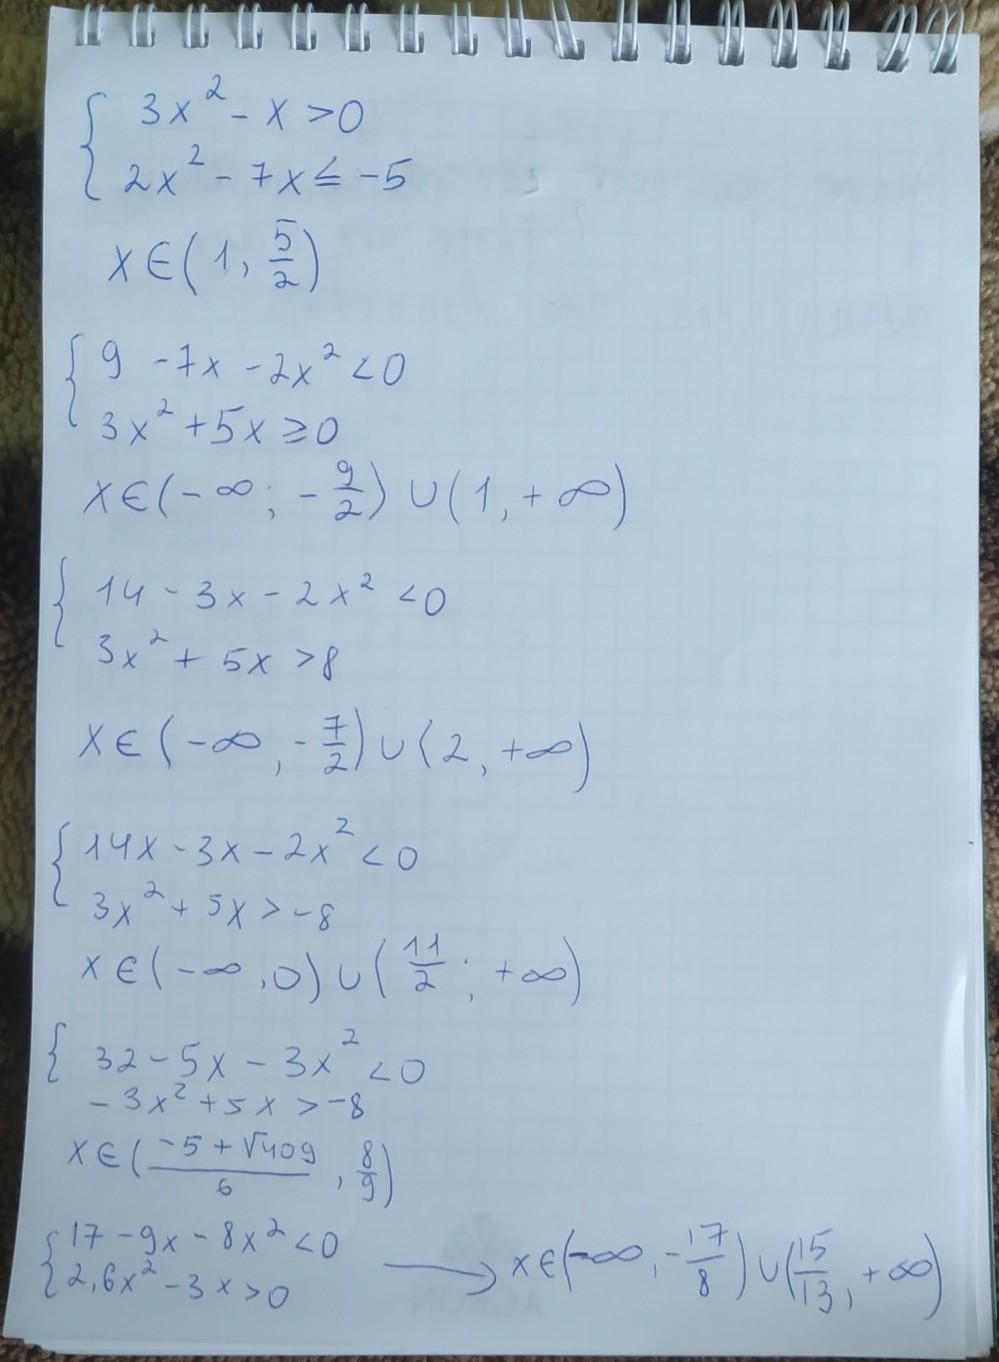 { 3x² - x > 0
2x² - 7x ≤ -5
x ∈ (1, 5/2)
{ 9 - 7x - 2x² < 0
3x² + 5x ≥ 0
x ∈ (-∞; -9/2) ∪ (1, +∞)
{ 14 - 3x - 2x² < 0
3x² + 5x > 8
x ∈ (-∞, -7/2) ∪ (2, +∞)
{ 14x - 3x - 2x² < 0
3x² + 5x > -8
x ∈ (-∞, 0) ∪ (11/2; +∞)
{ 32 - 5x - 3x² < 0
-3x² + 5x > -8
x ∈ ((-5 + √409)/6, 8/9)
{ 17 - 9x - 8x² < 0
2,6x² - 3x > 0 → x ∈ (-∞, -17/8) ∪ (15/13, +∞)